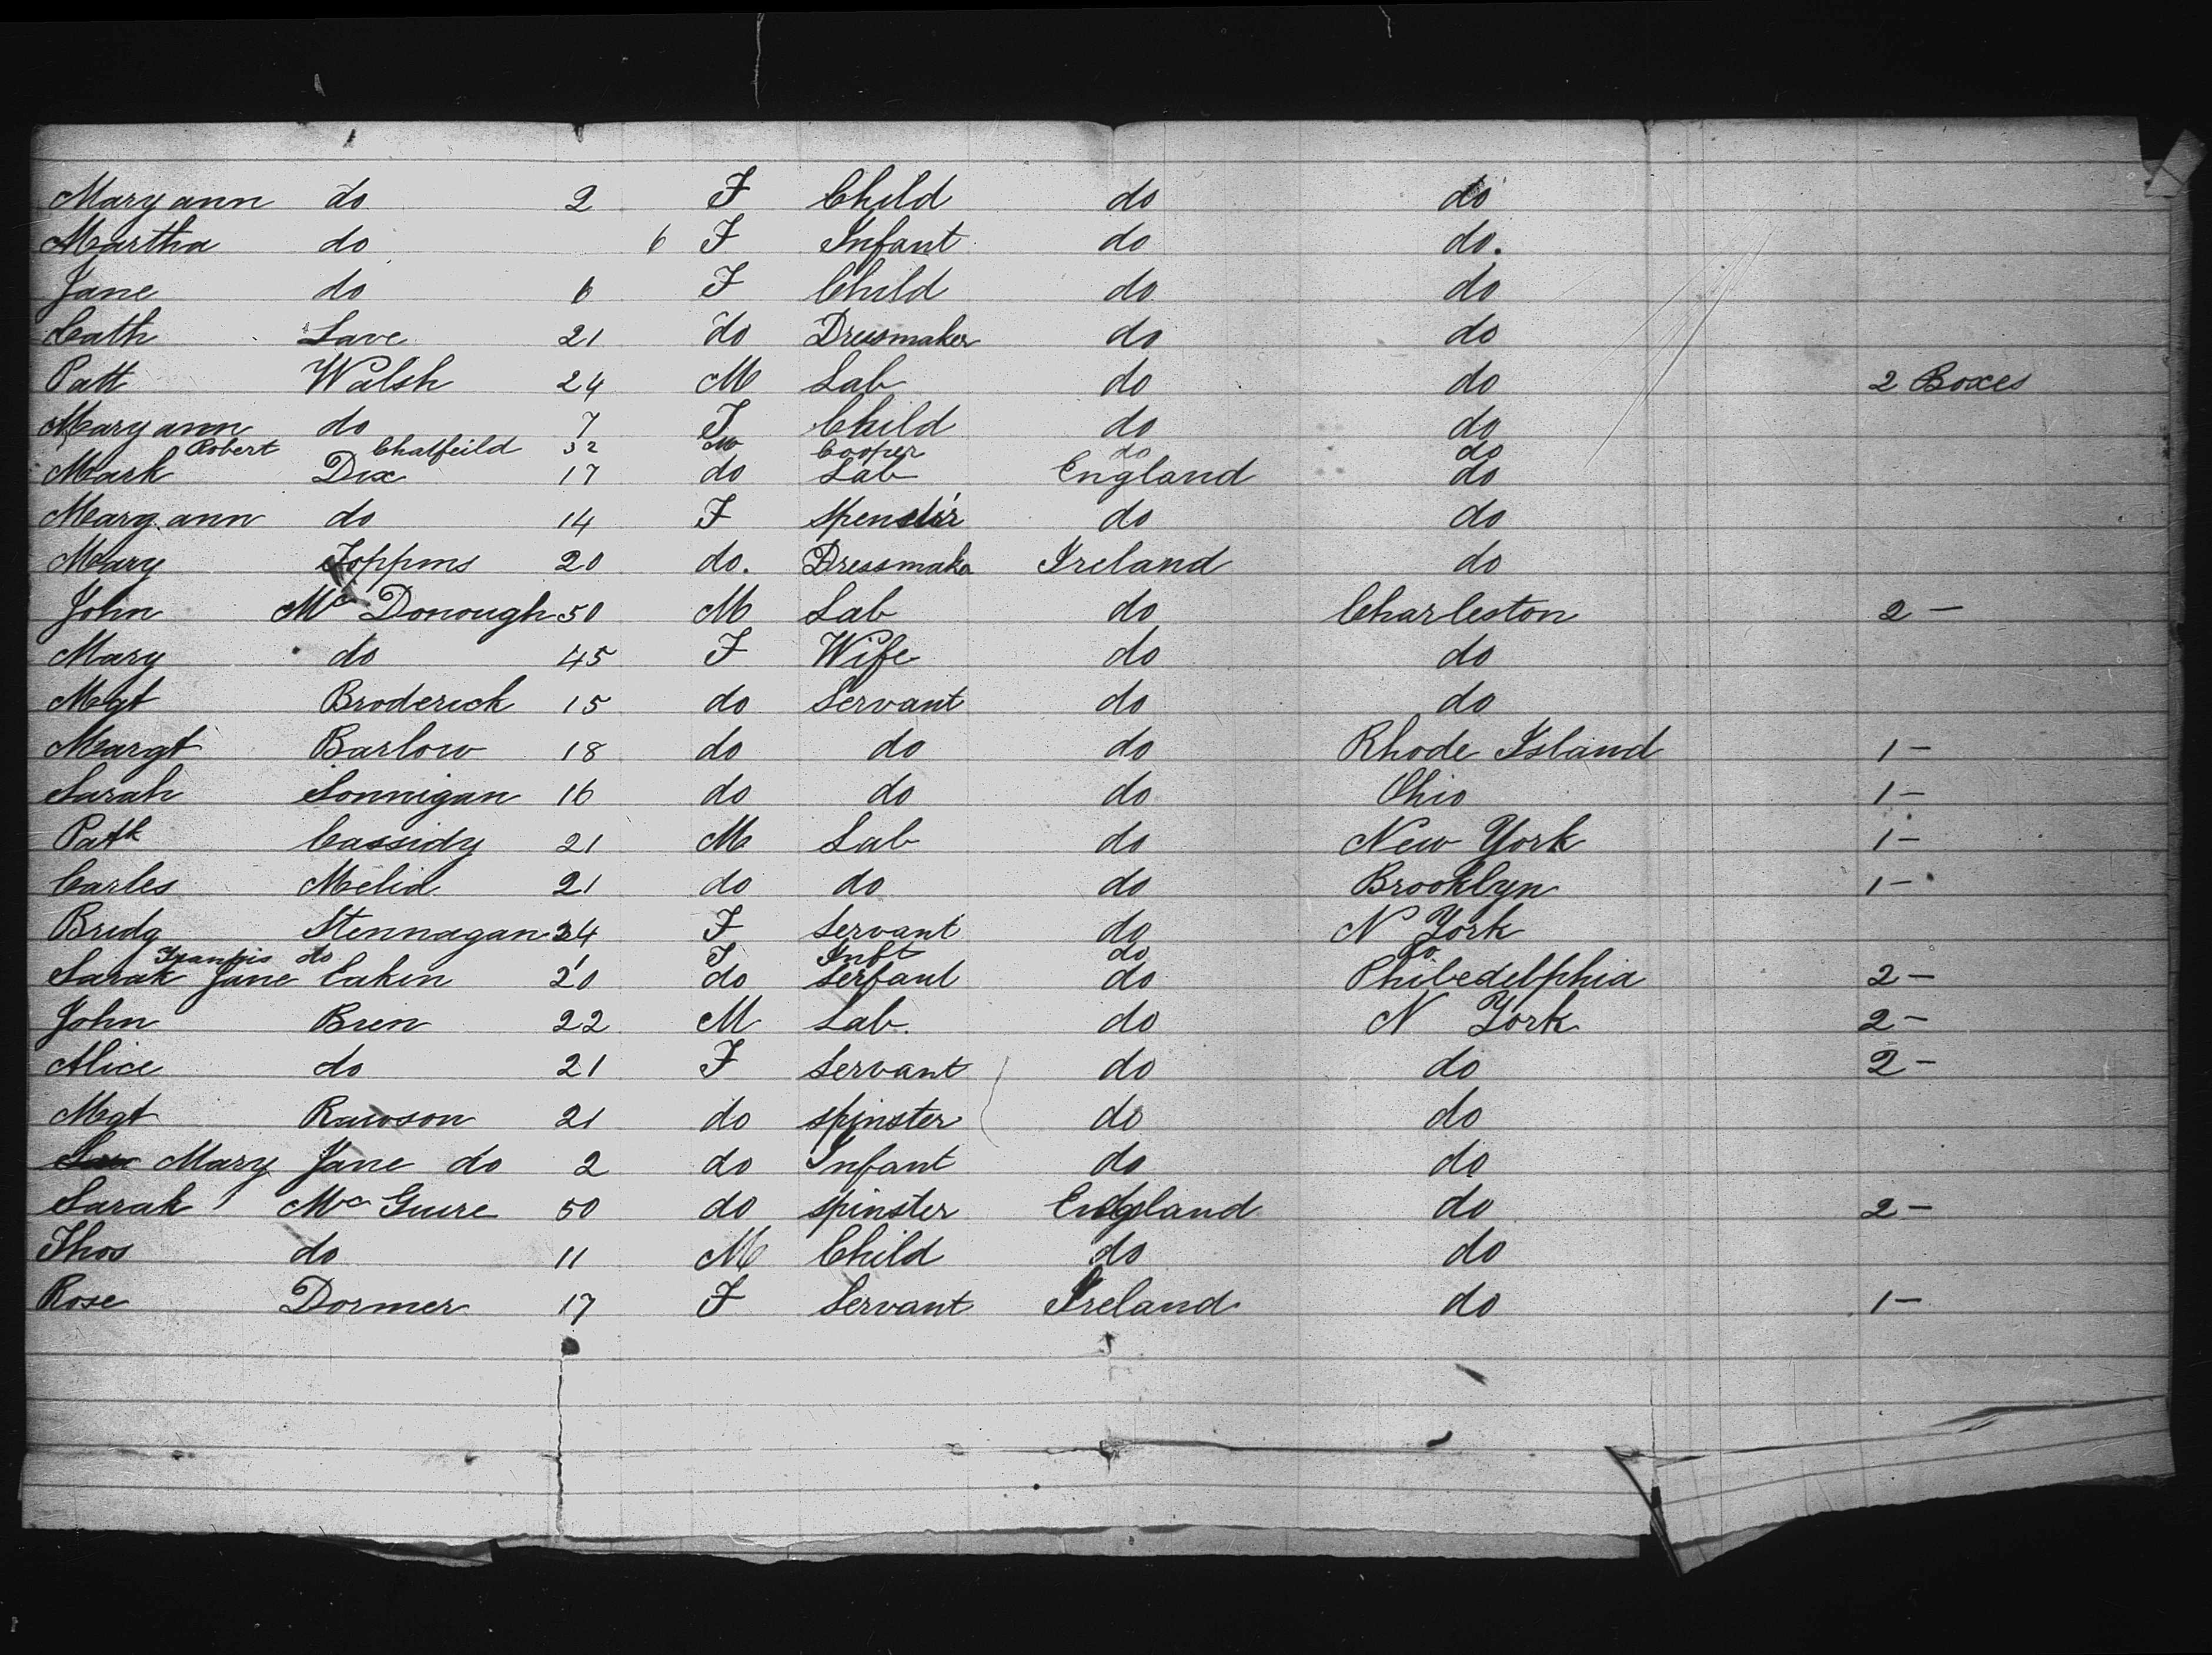 Mary ann do 2 F Child do do
Martha do 6 F Infant do do.
Jane do 6 F Child do do
Cath Lave 21 do Dressmaker do do
Patt Walsh 24 M Lab do do 2 Boxes
Mary ann do 7 F Child do do
Robert Chatfeild 32 M Cooper do do
Mark Dix 17 do Lab England do
Mary ann do 14 F do do
Mary 20 do. Dressmaker Ireland do
John Mc Donough 50 M Lab do Charleston 2 –
Mary do 45 F Wife do do
Mgt Broderick 15 do Servant do do
Margt Barlow 18 do do do Rhode Island 1 –
Sarah Sonnigan 16 do do do Ohio 1 –
Patk Cassidy 21 M Lab do New York 1 –
Carles Melid 21 do do do Brooklyn 1 –
Bridg Stennagan 24 F Servant do N York
Francis do 1 F Inft do do
Sarah Jane Eakin 20 do Serfant do Philedelphia 2 –
John Bren 22 M Lab. do N York 2 –
Alice do 21 F Servant do do 2 –
Mgt Rawson 21 do Spinster do do
Mary Jane do 2 do Infant do do
Sarah Mc Guire 50 do Spinster England do 2 –
Thos do 11 M Child do do
Rose Dormer 17 F Servant Ireland do 1 –